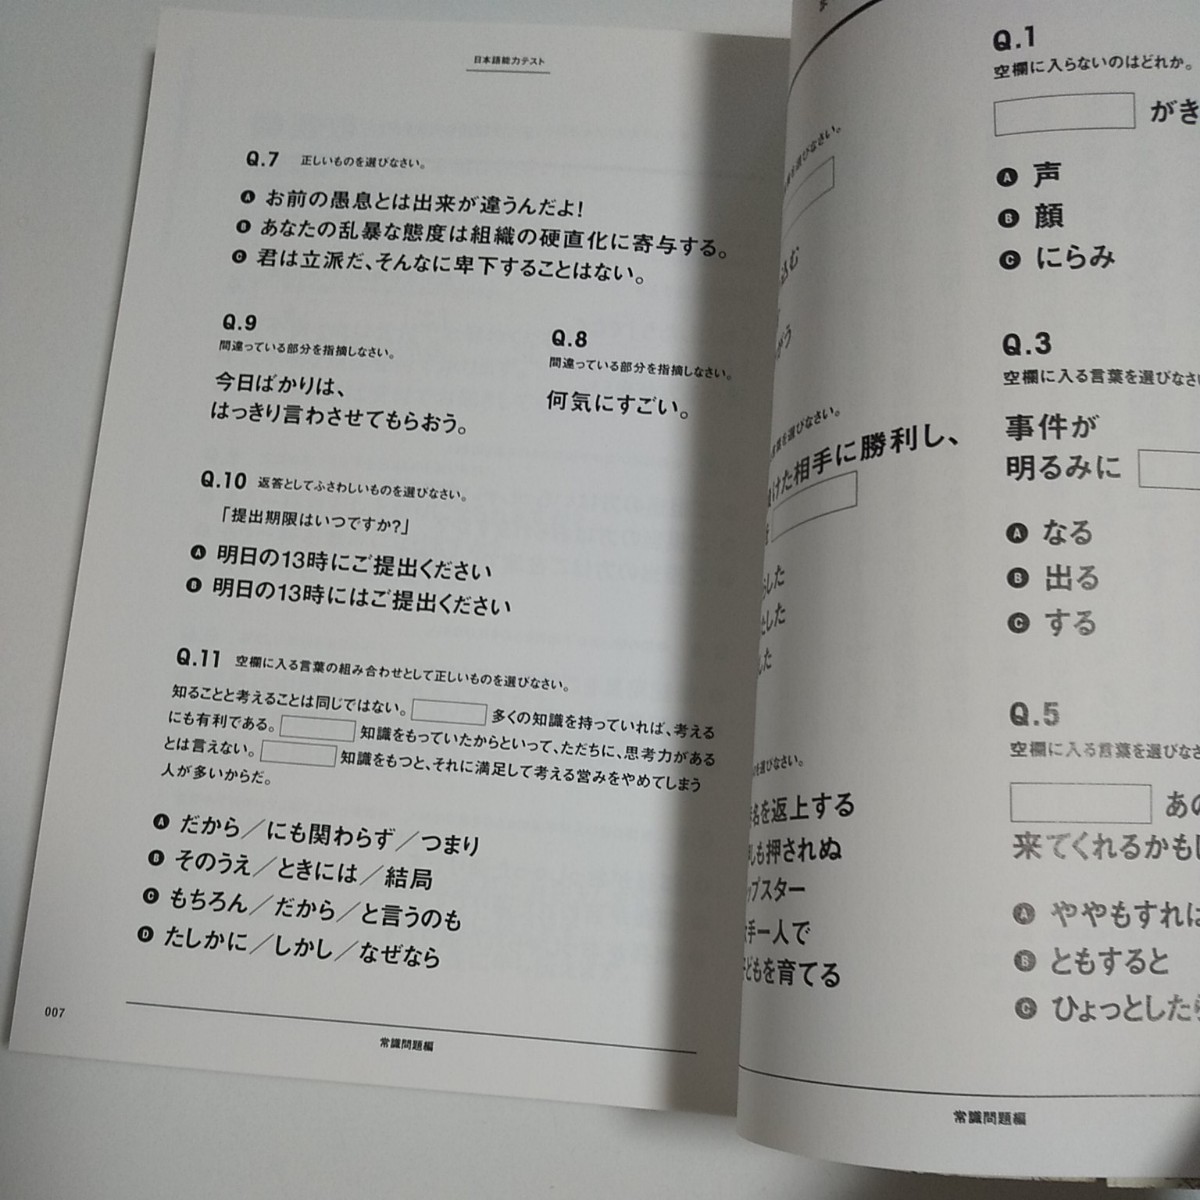 日本語能力テスト
Q.7 正しいものを選びなさい。
A お前の愚息とは出来が違うんだよ!
B あなたの乱暴な態度は組織の硬直化に寄与する。
C 君は立派だ、そんなに卑下することはない。
Q.9
間違っている部分を指摘しなさい。
今日ばかりは、
はっきり言わさせてもらおう。
Q.8
間違っている部分を指摘しなさい。
何気にすごい。
Q.10 返答としてふさわしいものを選びなさい。
「提出期限はいつですか?」
A 明日の13時にご提出ください
B 明日の13時にはご提出ください
Q.11 空欄に入る言葉の組み合わせとして正しいものを選びなさい。
知ることと考えることは同じではない。 多くの知識を持っていれば、考える
にも有利である。 知識をもっていたからといって、ただちに、思考力がある
とは言えない。 知識をもつと、それに満足して考える営みをやめてしまう
人が多いからだ。
A だから/にも関わらず/つまり
B そのうえ/ときには/結局
C もちろん/だから/と言うのも
D たしかに/しかし/なぜなら
007
常識問題編
を選びなさい。
込む
がう
を選びなさい。
けた相手に勝利し、
した
たした
した
を選びなさい。
名を返上する
しも押されぬ
ップスター
手一人で
どもを育てる
Q.1
空欄に入らないのはどれか。
がき
A 声
B 顔
C にらみ
Q.3
空欄に入る言葉を選びなさい
事件が
明るみに
A なる
B 出る
C する
Q.5
空欄に入る言葉を選びなさ
あの
来てくれるかもし
A ややもすれば
B ともすると
C ひょっとしたら
常識問題編